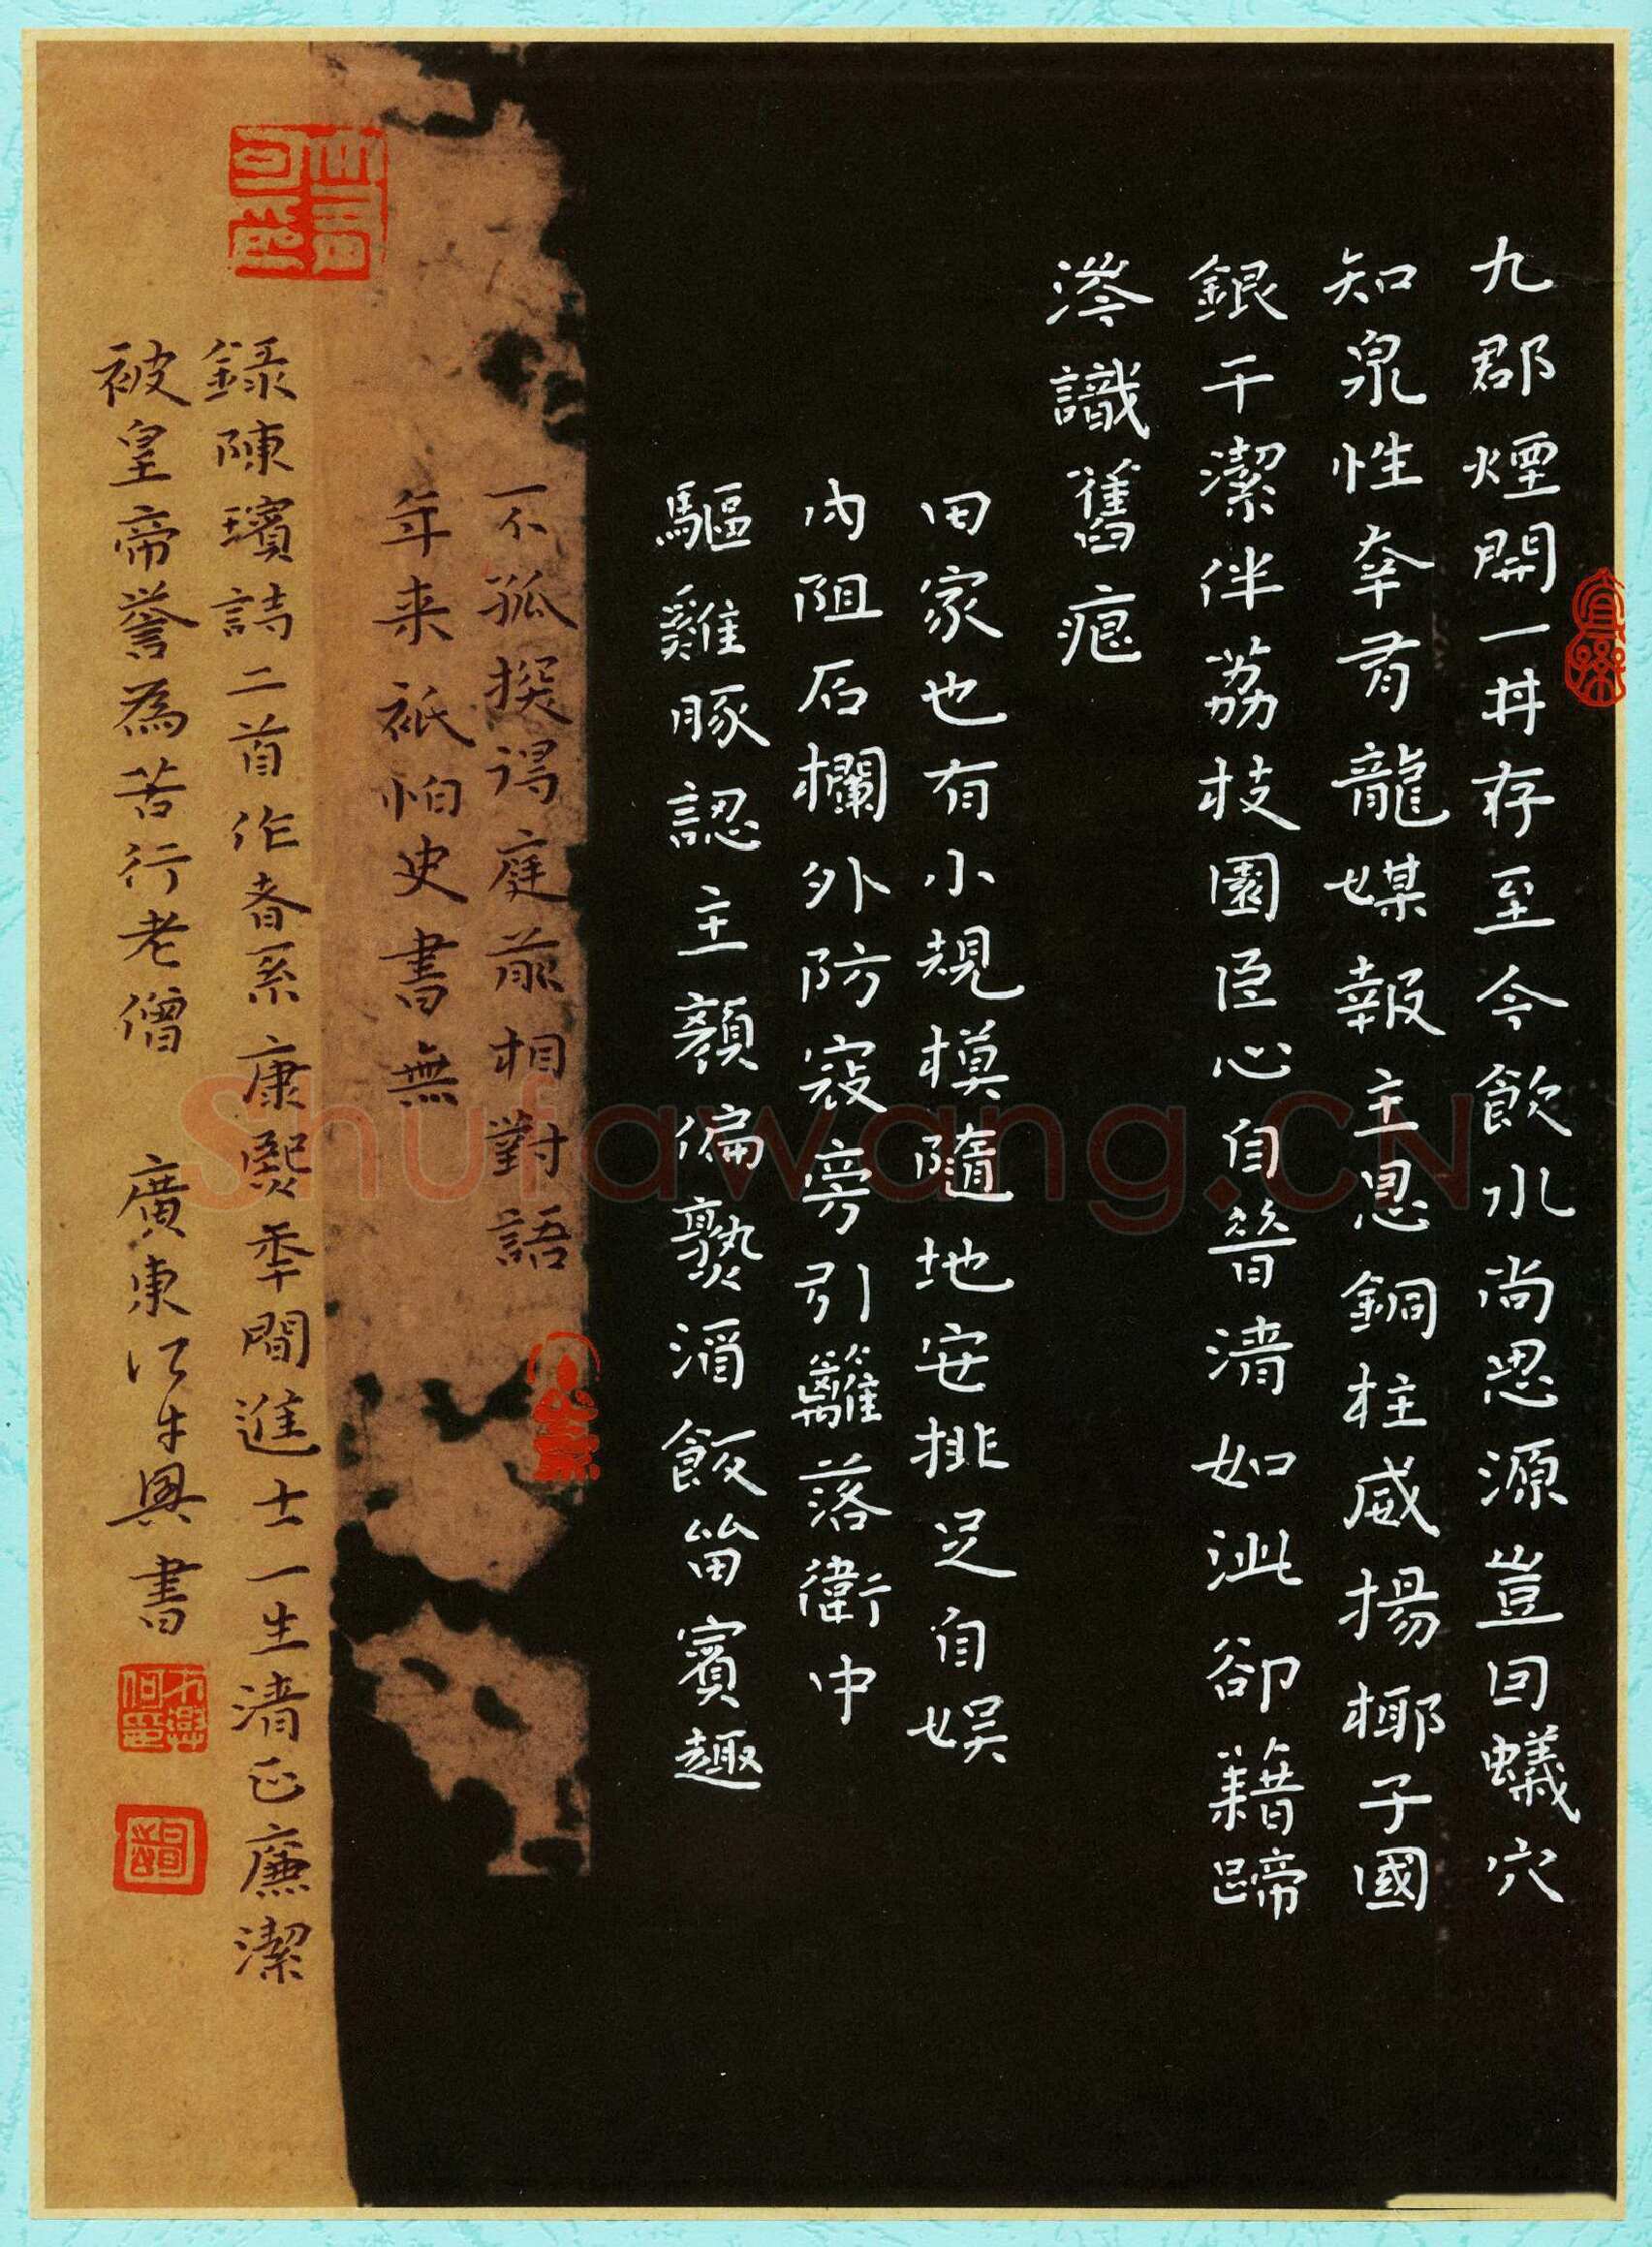 九郡煙開一井存至今飲水尚思源豈因蟻穴
知泉性幸有龍媒報主恩銅柱威揚椰子國
銀干潔伴荔枝園臣心自簪清如泚卻藉蹄
涔識舊痕
田家也有小規模隨地安排足自娛
內阻石欄外防寇旁引籬落衛中
驅雞豚認主顏偏熟酒飯留賓趣
不孤撰得庭前相對語
年来祇怕史書無
錄陳璸詩二首作者系康熙年間進士一生清正廉潔
被皇帝譽為苦行老僧 廣東何才興書
Shufawang.CN